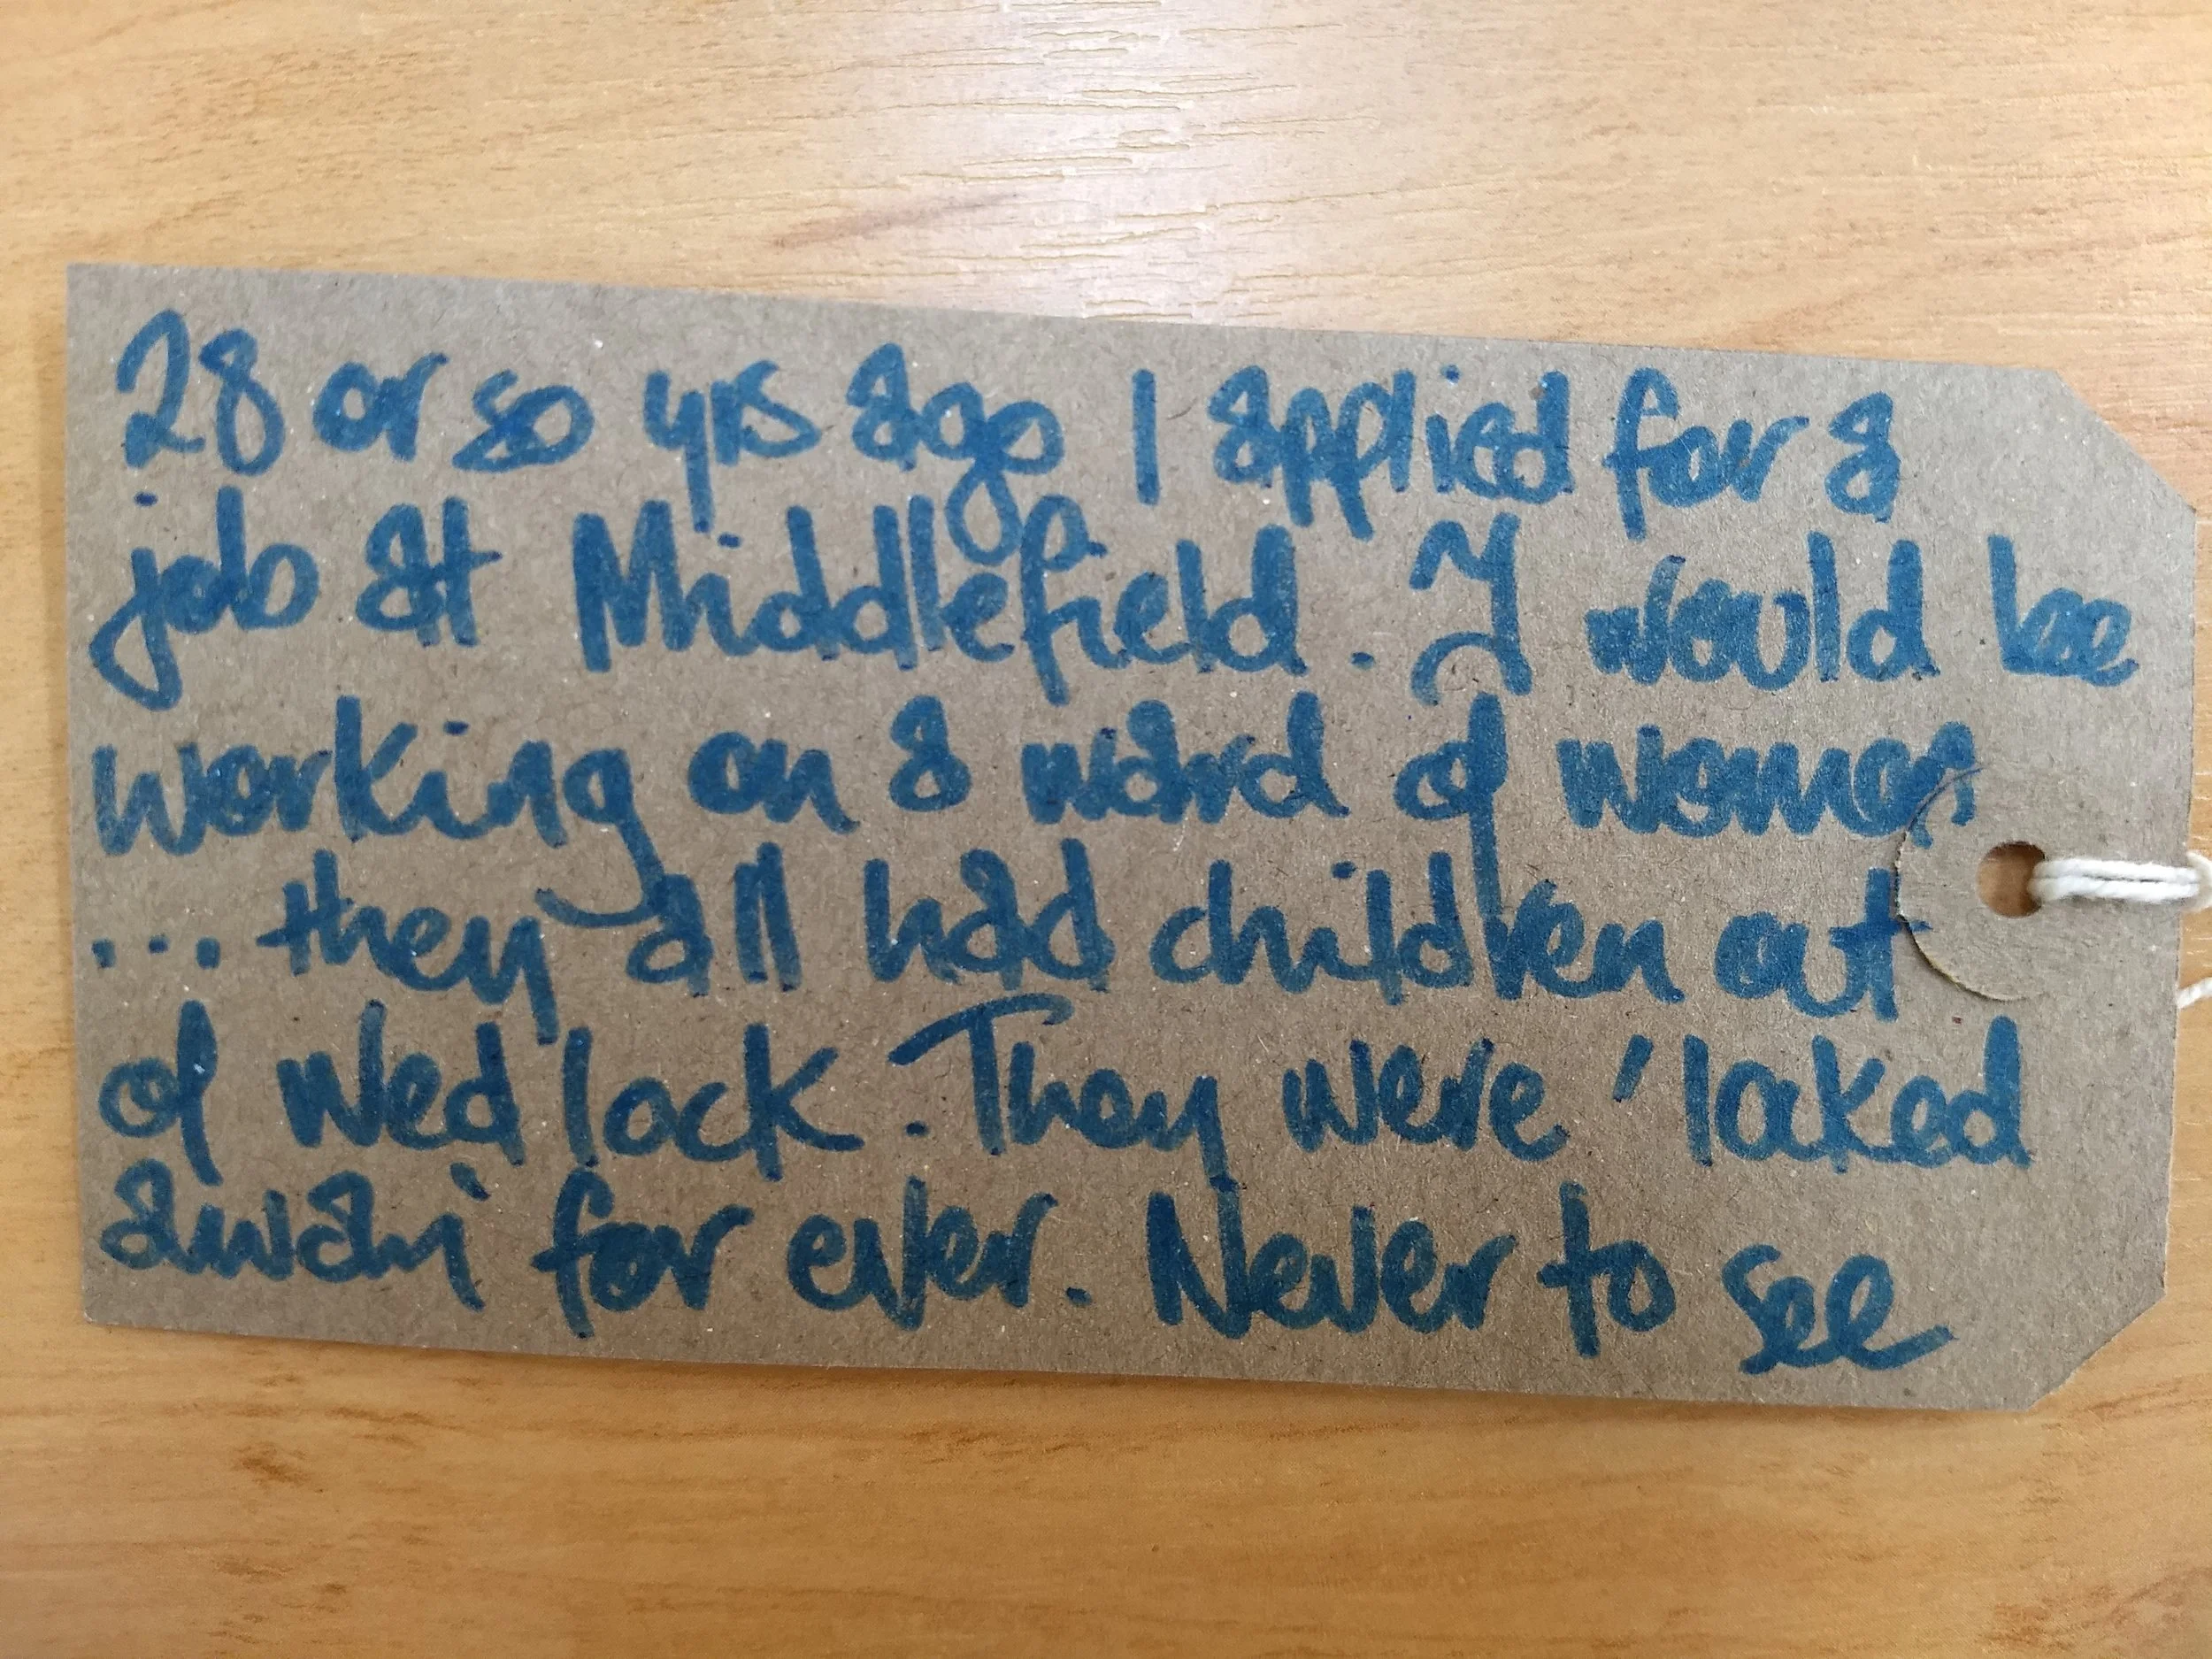 28 or so yrs ago I applied for a
job at Middlefield. I would be
working on a ward of women
... they all had children out
of wed lock. They were 'locked
away' for ever. Never to see